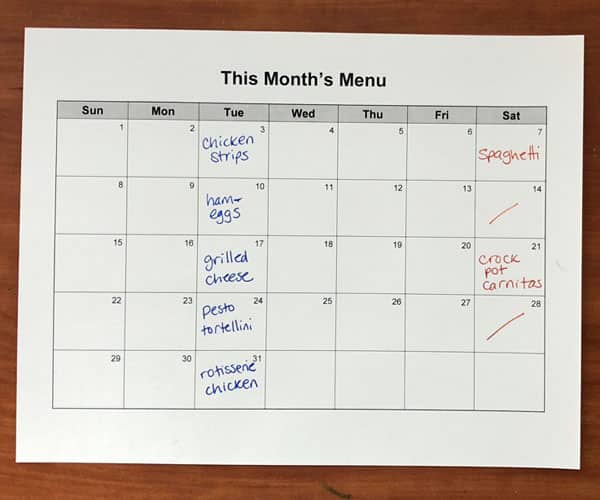 This Month's Menu
Sun Mon Tue Wed Thu Fri Sat
1 2 3 4 5 6 7
chicken
strips
spaghetti
8 9 10 11 12 13 14
ham+
eggs
15 16 17 18 19 20 21
grilled
cheese
crock
pot
carnitas
22 23 24 25 26 27 28
pesto
tortellini
29 30 31
rotisserie
chicken